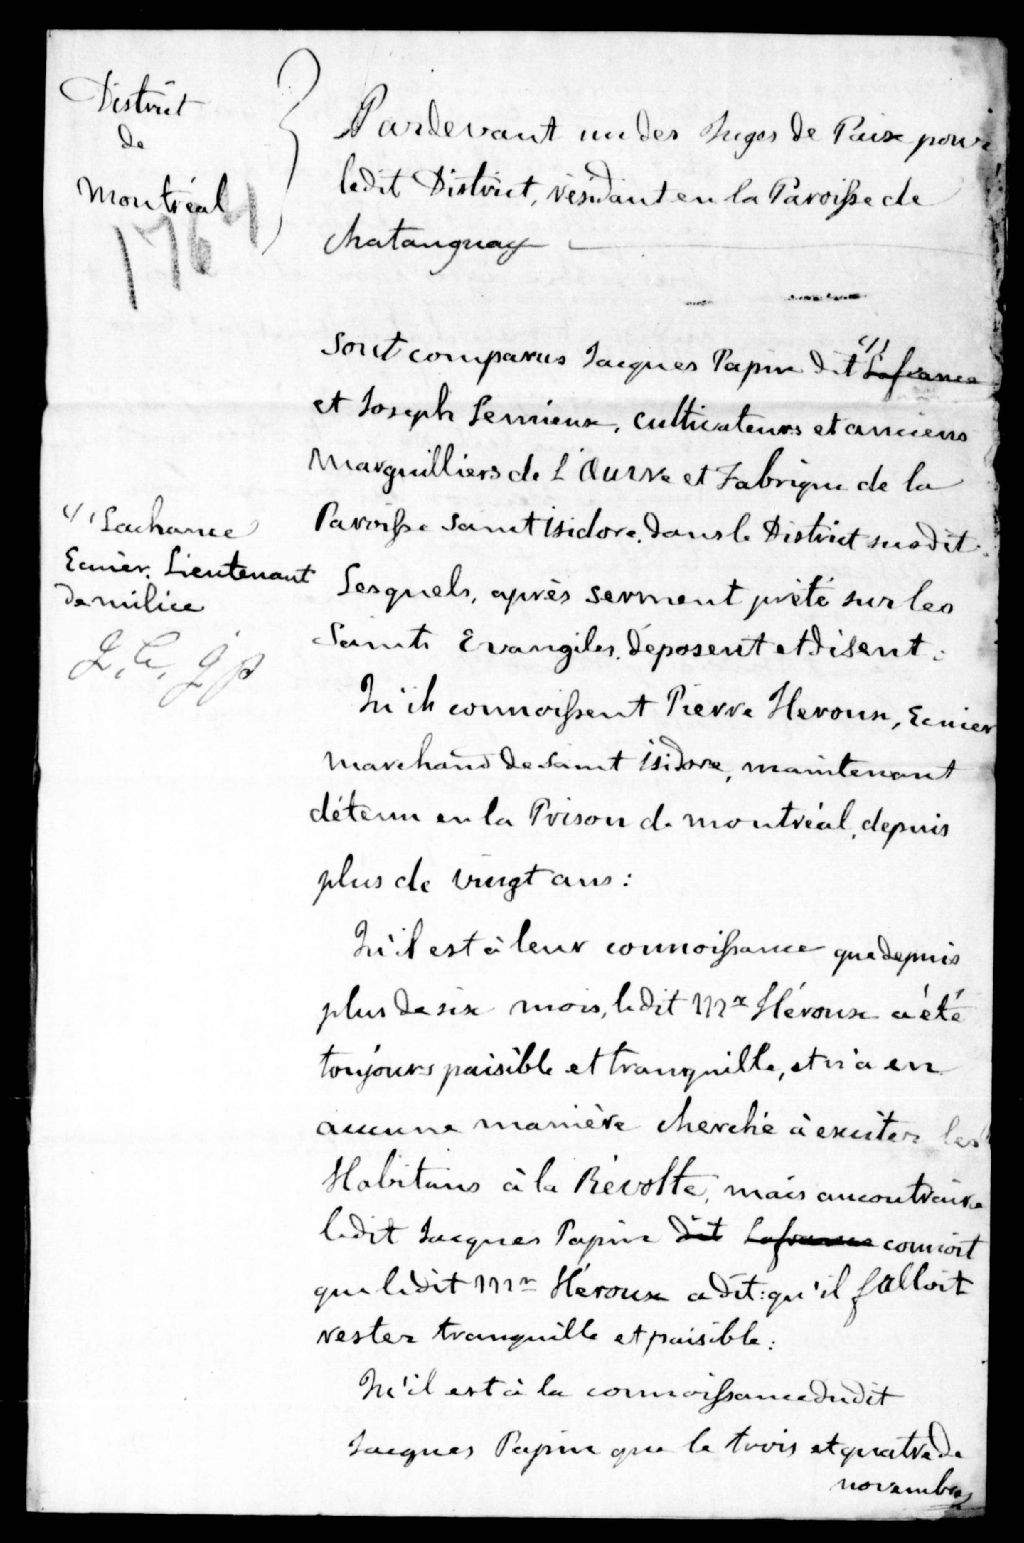 District
de
Montréal
1764
Pardevant un des Juges de Paix pour
ledit District, résidant en la Paroisse de
chataugnay
sont comparus Jacques Papin dit (1) Lafrance
et Joseph Lemieux, cultivateurs et anciens
Marguilliers de L'Œuvre et Fabrique de la
Paroisse Saint isidore, dans le District susdit.
(1) Lachance
Ecuier, Lieutenant
de milice
Lesquels, après serment prêté sur les
Saints Evangiles, déposent et disent:
Qu'ils connoissent Pierre Heroux, Ecuier
marchand de saint isidore, maintenant
détenu en la Prison de montréal, depuis
plus de vingt ans:
Qu'il est à leur connoissance que depuis
plus de six mois, ledit Mr Héroux a été
toujours paisible et tranquille, et n'a en
aucune manière cherché à exciter les
Habitans à la Révolte, mais au contraire
ledit Jacques Papin dit Lafrance connoit
que ledit Mr Héroux a dit: qu'il falloit
rester tranquille et paisible:
Qu'il est à la connoissance dudit
Jacques Papin que le trois et quatre de
novembre